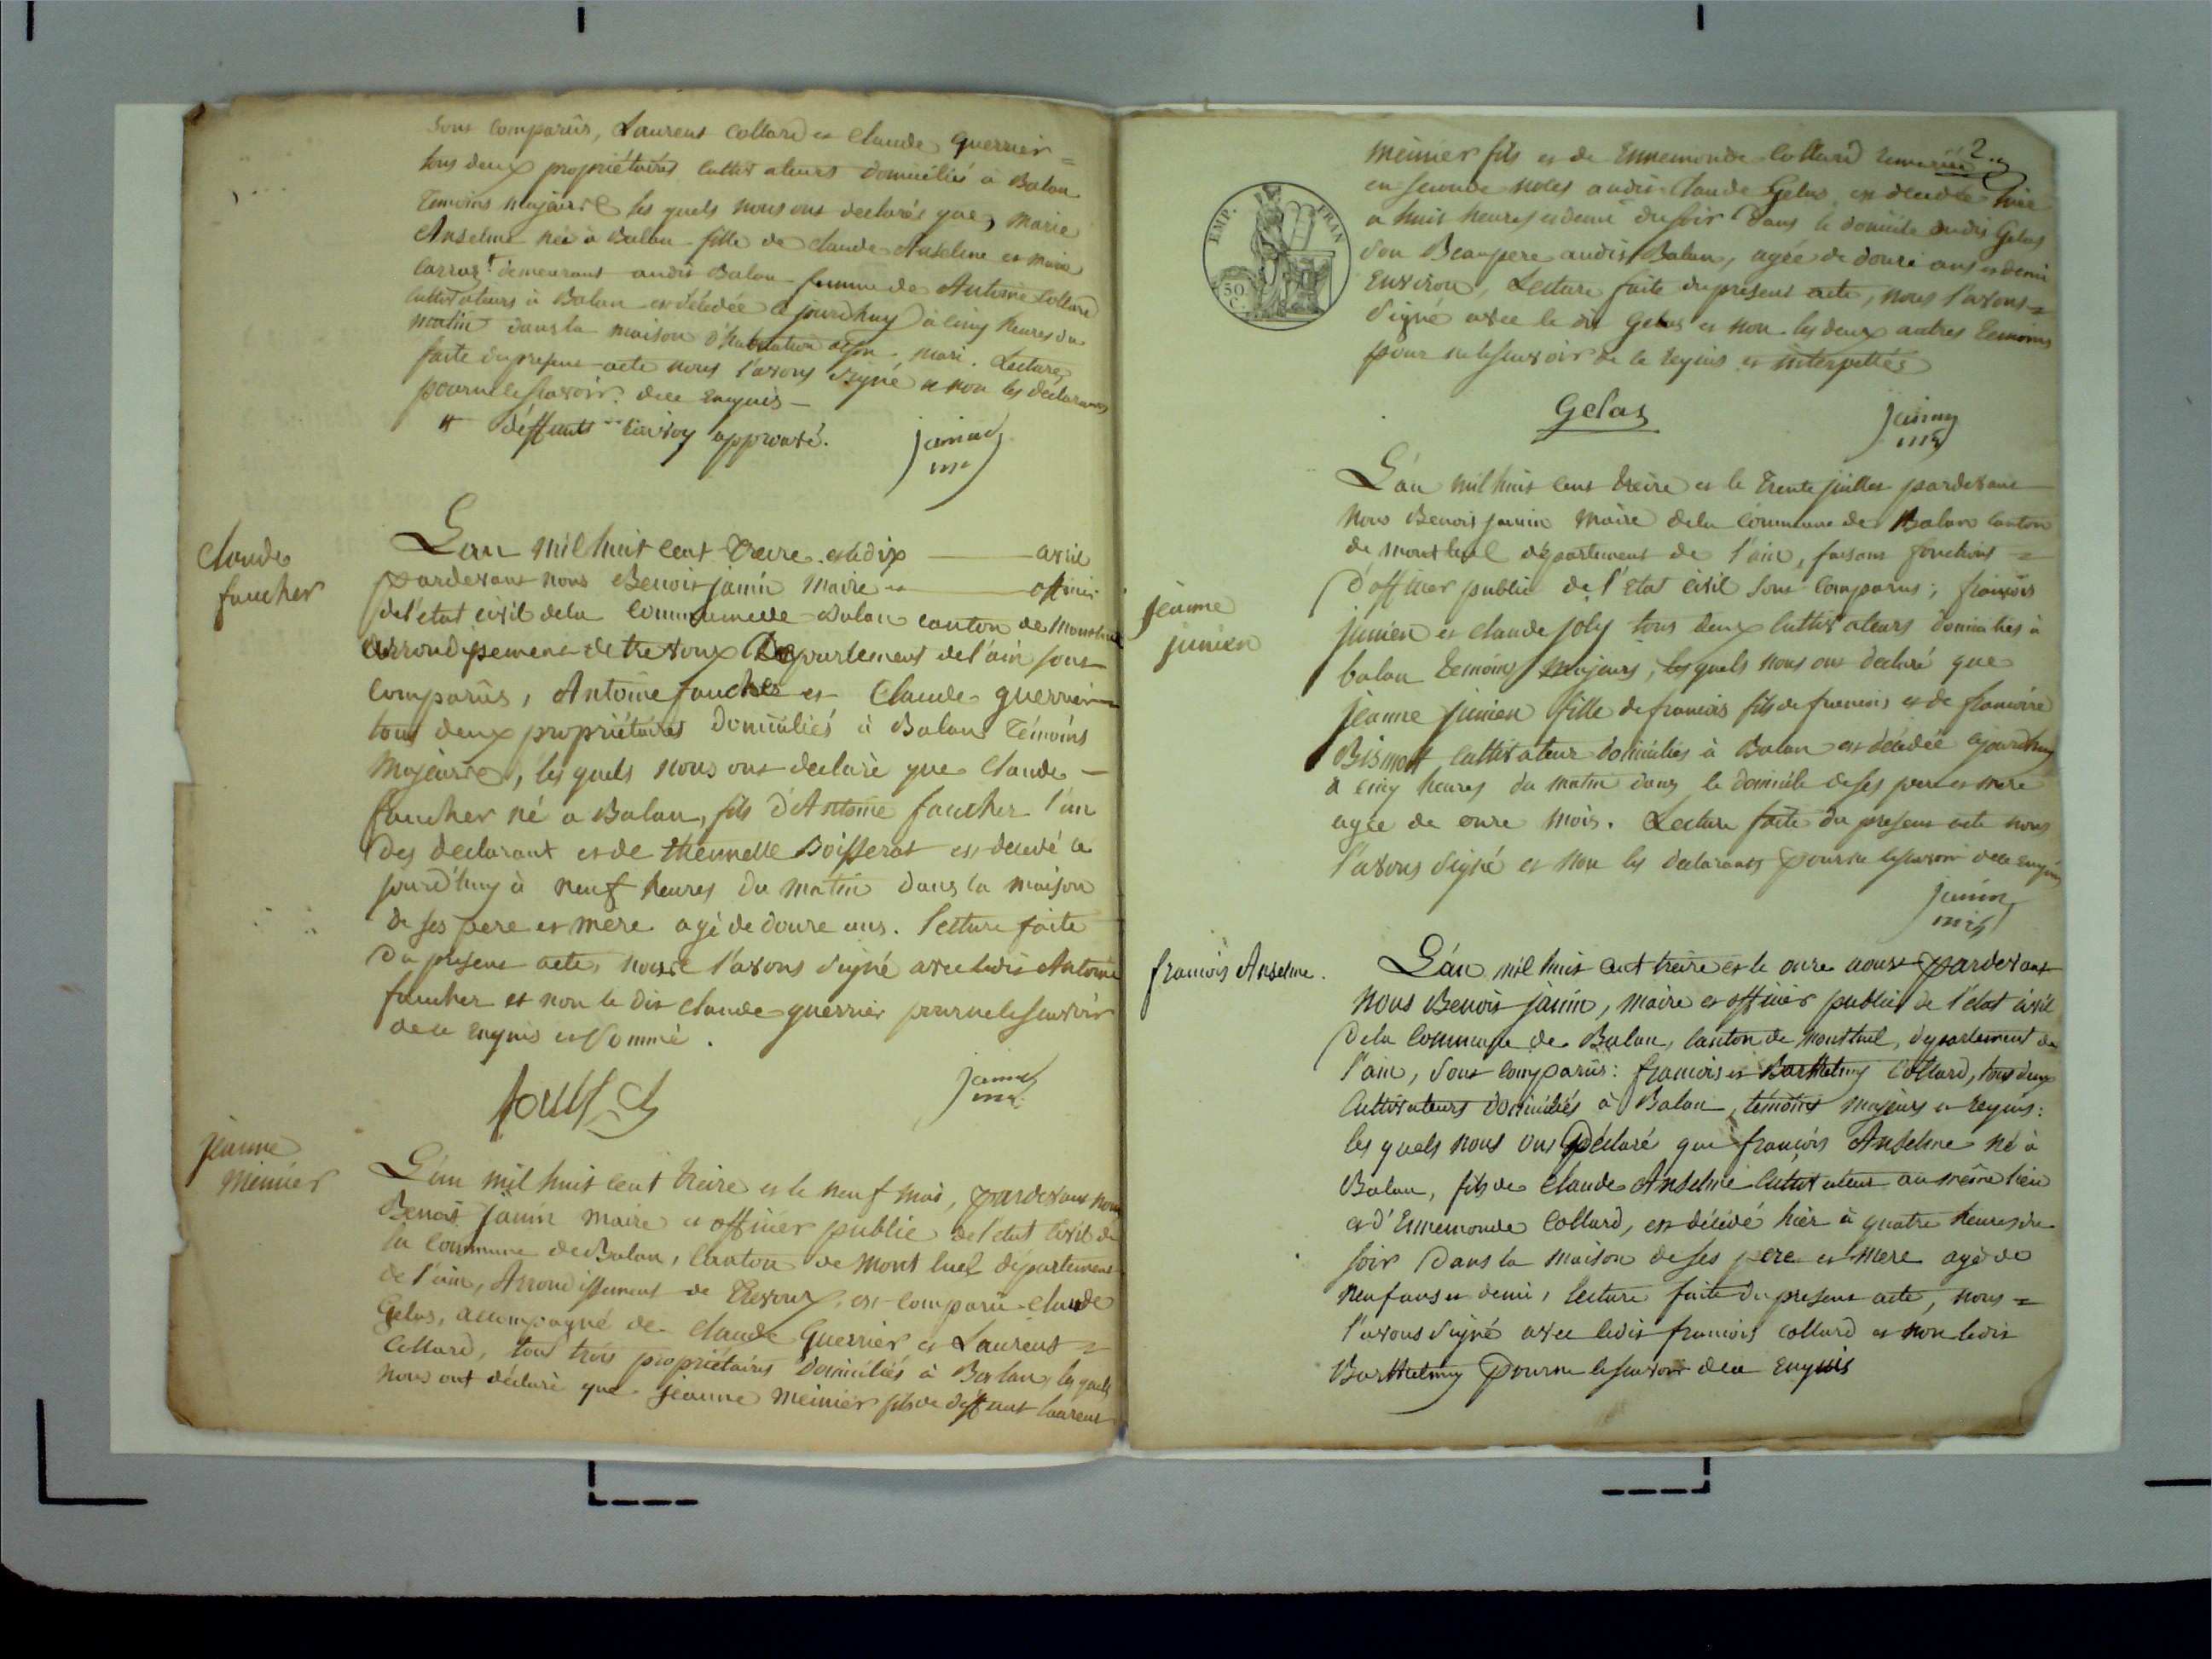 sont comparûs, Laurent Collard et Claude Guerrier =
tous deux propriétaires cultivateurs domiciliés à Balan
Temoins majeures les quels nous ont declarés que, Marie
Anselme née à Balan fille de Claude Anselme et Marie
demeurant audit Balan femme de Antoine Collard
cultivateurs à Balan est décédée ce jourdhuy à cinq heures du
matin dans la maison d'habitation de son mari. Lecture
faite du present acte nous l'avons signé et non les déclarants
pour ne le savoir de ce enquis —
deffunts renvoy approuvé.
janin
me
Claude
faucher
L'an mil huit cent treize et le dix —— avril
pardevant nous Benoit janin maire et —— officier
de l'etat civil de la commune de Balan canton de Montluel
arrondissement de trevoux Departement de l'ain sont
comparûs, Antoine faucher et Claude guerrier =
tous deux propriétaires domiciliés à Balan Témoins
majeures, les quels nous ont declaré que Claude —
faucher né a Balan, fils d'Antoine faucher l'un
des declarant et de thiennette Boisserat est decedé ce
jourd'huy à neuf heures du matin dans la maison
de ses pere et mere agé de douze ans. lecture faite
du present acte, nous l'avons signé avec ledit Antoine
faucher et non le dit claude guerrier pour ne le savoir
de ce enquis et sommé.
janin
me
jeanne
Meinier
L'an mil huit cent treize et le neuf mai, pardevant nous
Benoit janin maire et officier public de l'etat civil de
la commune de Balan, canton de Montluel département
de l'ain, Arrondissement de Trevoux, est comparu claude
Gelas, accompagné de Claude Guerrier et Laurent =
Collard, tous trois propriétaires domiciliés à Balan, les quels
nous ont déclaré que jeanne Meinier fils de deffunt laurent
2.
Meinier fils et de Ennemonde Collard remariée
en seconde noces audit Claude Gelas est decedée hier
a huit heures et demi du soir dans le domicile dudit Gelas
son Beaupere audit Balan, agée de douze ans et demi
environ, Lecture faite du present acte, nous l'avons =
signé avec le dit Gelas et non les deux autres temoins
pour ne le savoir de ce requis et interpellés
EMP. FRAN
50
C.
Gelas
janin
me
L'an mil huit cent treize et le trente juillet pardevant
nous Benoit janin Maire de la commune de Balan canton
de montluel département de l'ain, faisant fonctions =
d'officier public de l'etat civil sont comparus; françois
jumien et claude joly tous deux cultivateurs domiciliés à
balan temoins majeurs, les quels nous ont declaré que
jeanne jumien fille de francois fils de francois et de francoise
Bismott cultivateur domiciliés à Balan est décédée cejourdhuy
à cinq heures du matin dans le domicile de ses pere et mere
agée de onze mois. Lecture faite du present acte nous
l'avons signé et non les declarants pour ne le savoir de ce enquis
janin
me
jeanne
jumien
francois Anselme.
L'an mil huit cent treize et le onze aoust pardevant
nous Benoit janin, maire et officier public de l'état civil
de la commune de Balan, canton de montluel, departement de
l'ain, sont comparûs: francois et Barthelmy Collard, tous deux
cultivateurs domiciliés à Balan, témoins majeurs et requis:
les quels nous ont déclaré que françois Anselme né à
Balan, fils de Claude Anselme cultivateur au même lieu
et d'Ennemonde Collard, est décédé hier à quatre heures du
soir dans la maison de ses pere et mere agé de
neuf ans et demi, lecture faite du present acte, nous =
l'avons signé avec ledit francois collard et non ledit
Barthelmy pour ne le savoir de ce enquis